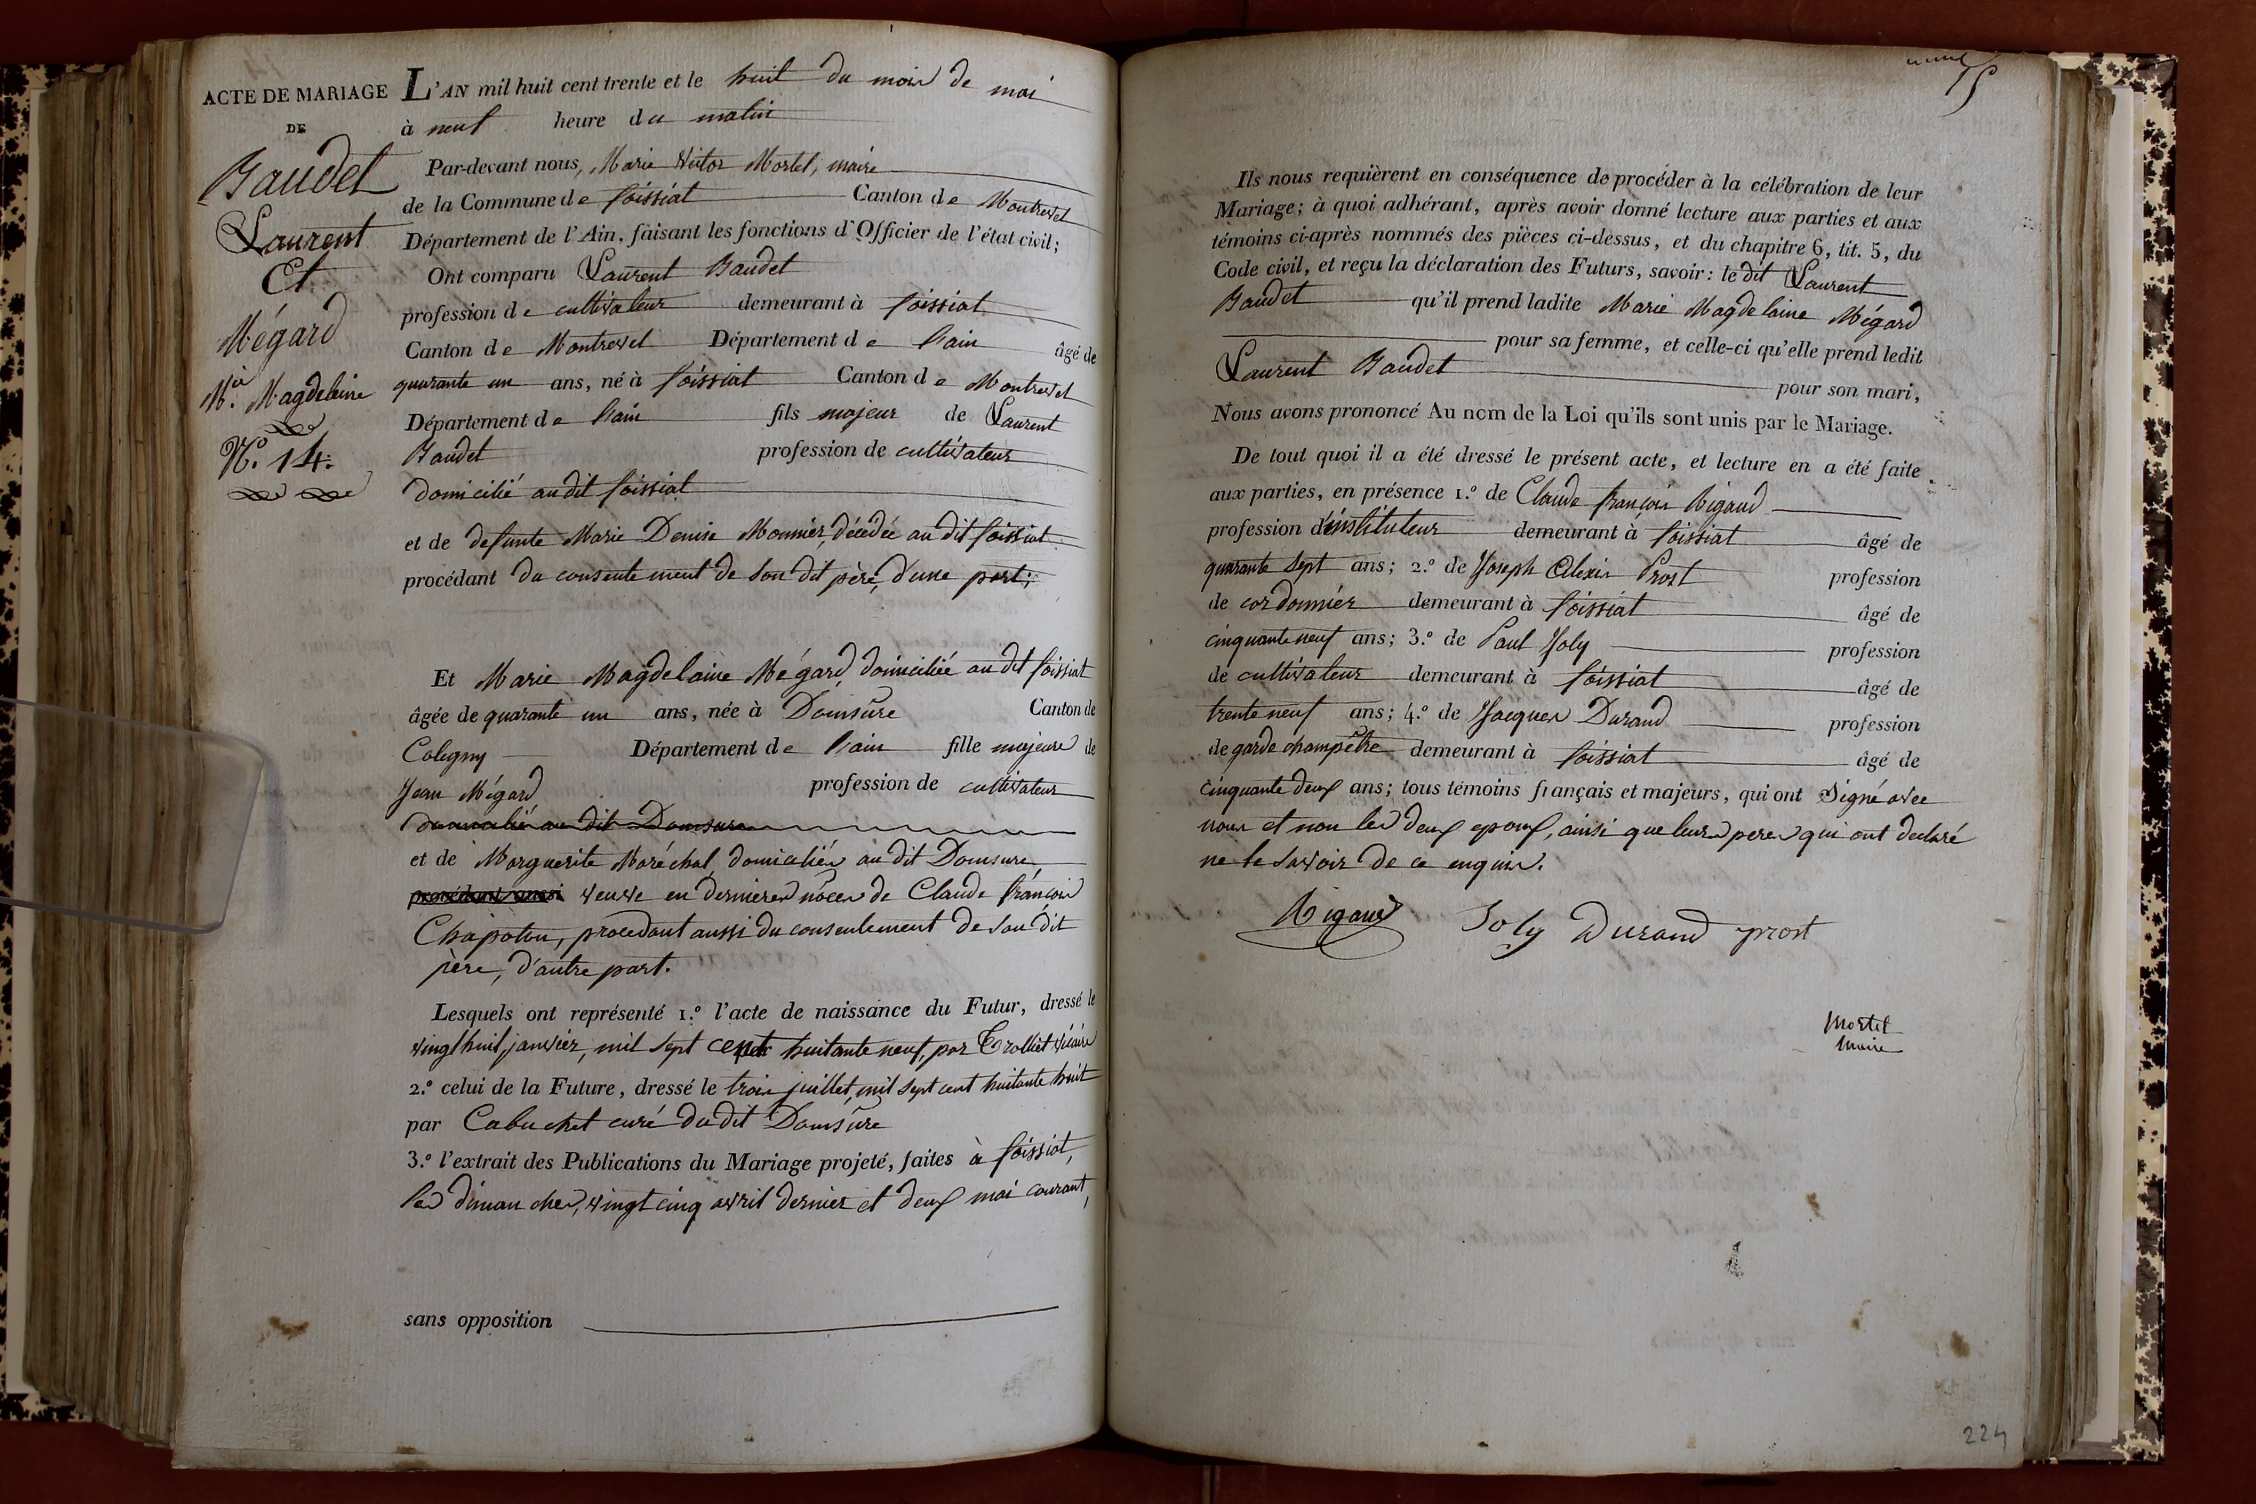 ACTE DE MARIAGE
DE
Baudet
Laurent
Et
Mégard
M.ie Magdelaine
N.o 14.
L'AN mil huit cent trente et le huit du mois de mai
à neuf heure du matin
Par-devant nous, Marie Victor Mortel, maire
de la Commune de foissiat Canton de Montrevel
Département de l'Ain, faisant les fonctions d'Officier de l'état civil;
Ont comparu Laurent Baudet
profession de cultivateur demeurant à foissiat
Canton de Montrevel Département de l'ain âgé de
quarante un ans, né à foissiat Canton de Montrevel
Département de l'ain fils majeur de Laurent
Baudet profession de cultivateur
domicilié au dit foissiat
et de defunte Marie Denise Monnier, décédée au dit foissiat
procédant du consentement de son dit père, d'une part;
Et Marie Magdelaine Mégard, domiciliée au dit foissiat
âgée de quarante un ans, née à Domsure Canton de
Coligny Département de l'ain fille majeure de
Jean Mégard profession de cultivateur
domicilié au dit Domsure
et de Marguerite Maréchal, domiciliés au dit Domsure,
procédant aussi veuve en dernieres nôces de Claude françois
Chapolu, procedant aussi du consentement de son dit
père, d'autre part.
Lesquels ont représenté 1.o l'acte de naissance du Futur, dressé le
vingt huit janvier, mil sept cent huitante neuf, par Trolliet vicaire
2.o celui de la Future, dressé le trois juillet, mil sept cent huitante huit
par Cabuchet curé du dit Domsure
3.o l'extrait des Publications du Mariage projeté, faites à foissiat,
les dimanches, vingt cinq avril dernier et deux mai courant,
sans opposition
15
Ils nous requièrent en conséquence de procéder à la célébration de leur
Mariage; à quoi adhérant, après avoir donné lecture aux parties et aux
témoins ci-après nommés des pièces ci-dessus, et du chapitre 6, tit. 5, du
Code civil, et reçu la déclaration des Futurs, savoir: le dit Laurent
Baudet qu'il prend ladite Marie Magdelaine Mégard
pour sa femme, et celle-ci qu'elle prend ledit
Laurent Baudet pour son mari,
Nous avons prononcé Au nom de la Loi qu'ils sont unis par le Mariage.
De tout quoi il a été dressé le présent acte, et lecture en a été faite
aux parties, en présence 1.o de Claude françois Rigaud
profession d'instituteur demeurant à foissiat âgé de
quarante sept ans; 2.o de Joseph Alexis Prost profession
de cordonnier demeurant à foissiat âgé de
cinquante neuf ans; 3.o de Paul Joly profession
de cultivateur demeurant à foissiat âgé de
trente neuf ans; 4.o de Jacques Durand profession
de garde champêtre demeurant à foissiat âgé de
cinquante deux ans; tous témoins français et majeurs, qui ont signé avec
nous et non les deux epoux, ainsi que leurs peres qui ont declaré
ne le savoir de ce enquis.
Rigaud Joly Durand prost
Mortel
Maire
224